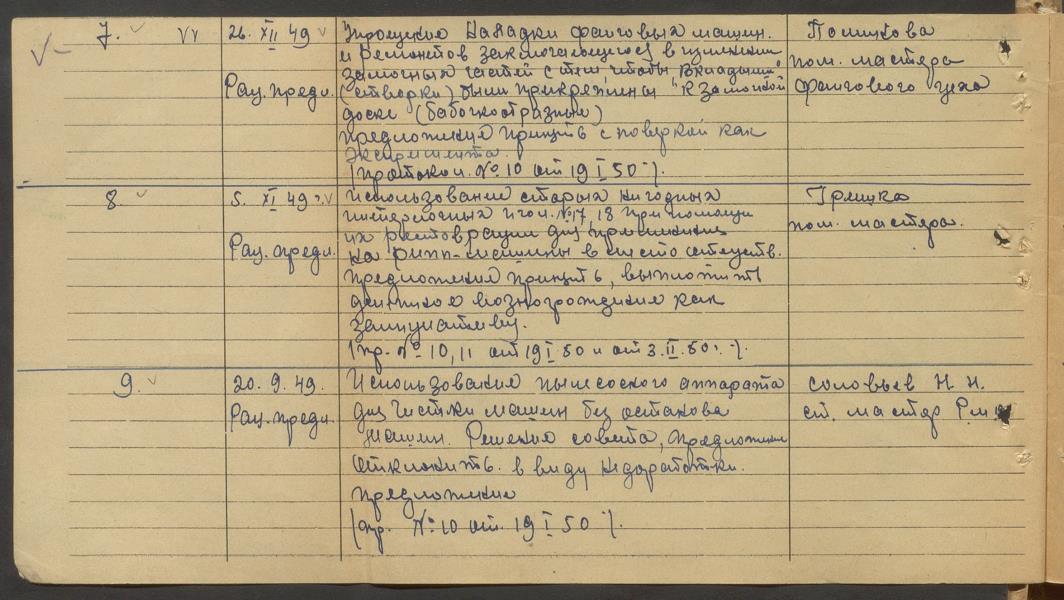 7. VV 26. XII 49 Упрощение Наладки фанговых машин. Полшкова
и ремонтов заключающегося в изменении пом. мастера
замочных частей с тем, чтобы "Вкладыши" фангового цеха
Рац. предл. (створки) были прикреплены к замочной
доске (бабочкообразные)
предложение принять с поверкой как
эксперимента.
(протокол. № 10 от 19 I 50 г.)
8 5. XI 49 г. V Использование старых негодных Гришко
игол. № 17, 18 при помощи пом. мастера.
их реставрации для применения
Рац. предл. на рипп-машины в место отсутств.
предложение принять, выплотить
денежное вознограждение как
(пр. № 10, 11 от 19 I 50 и от 3. II. 50 г.)
9. 20. 9. 49. Использование пылесоского аппарата Соловьев Н. Н.
Рац. предл. для чистки машин без останова ст. мастер
машин. Решение совета, предложение
отклонить. в виду недоработки.
предложение
(пр. № 10 от. 19 I 50 г.)